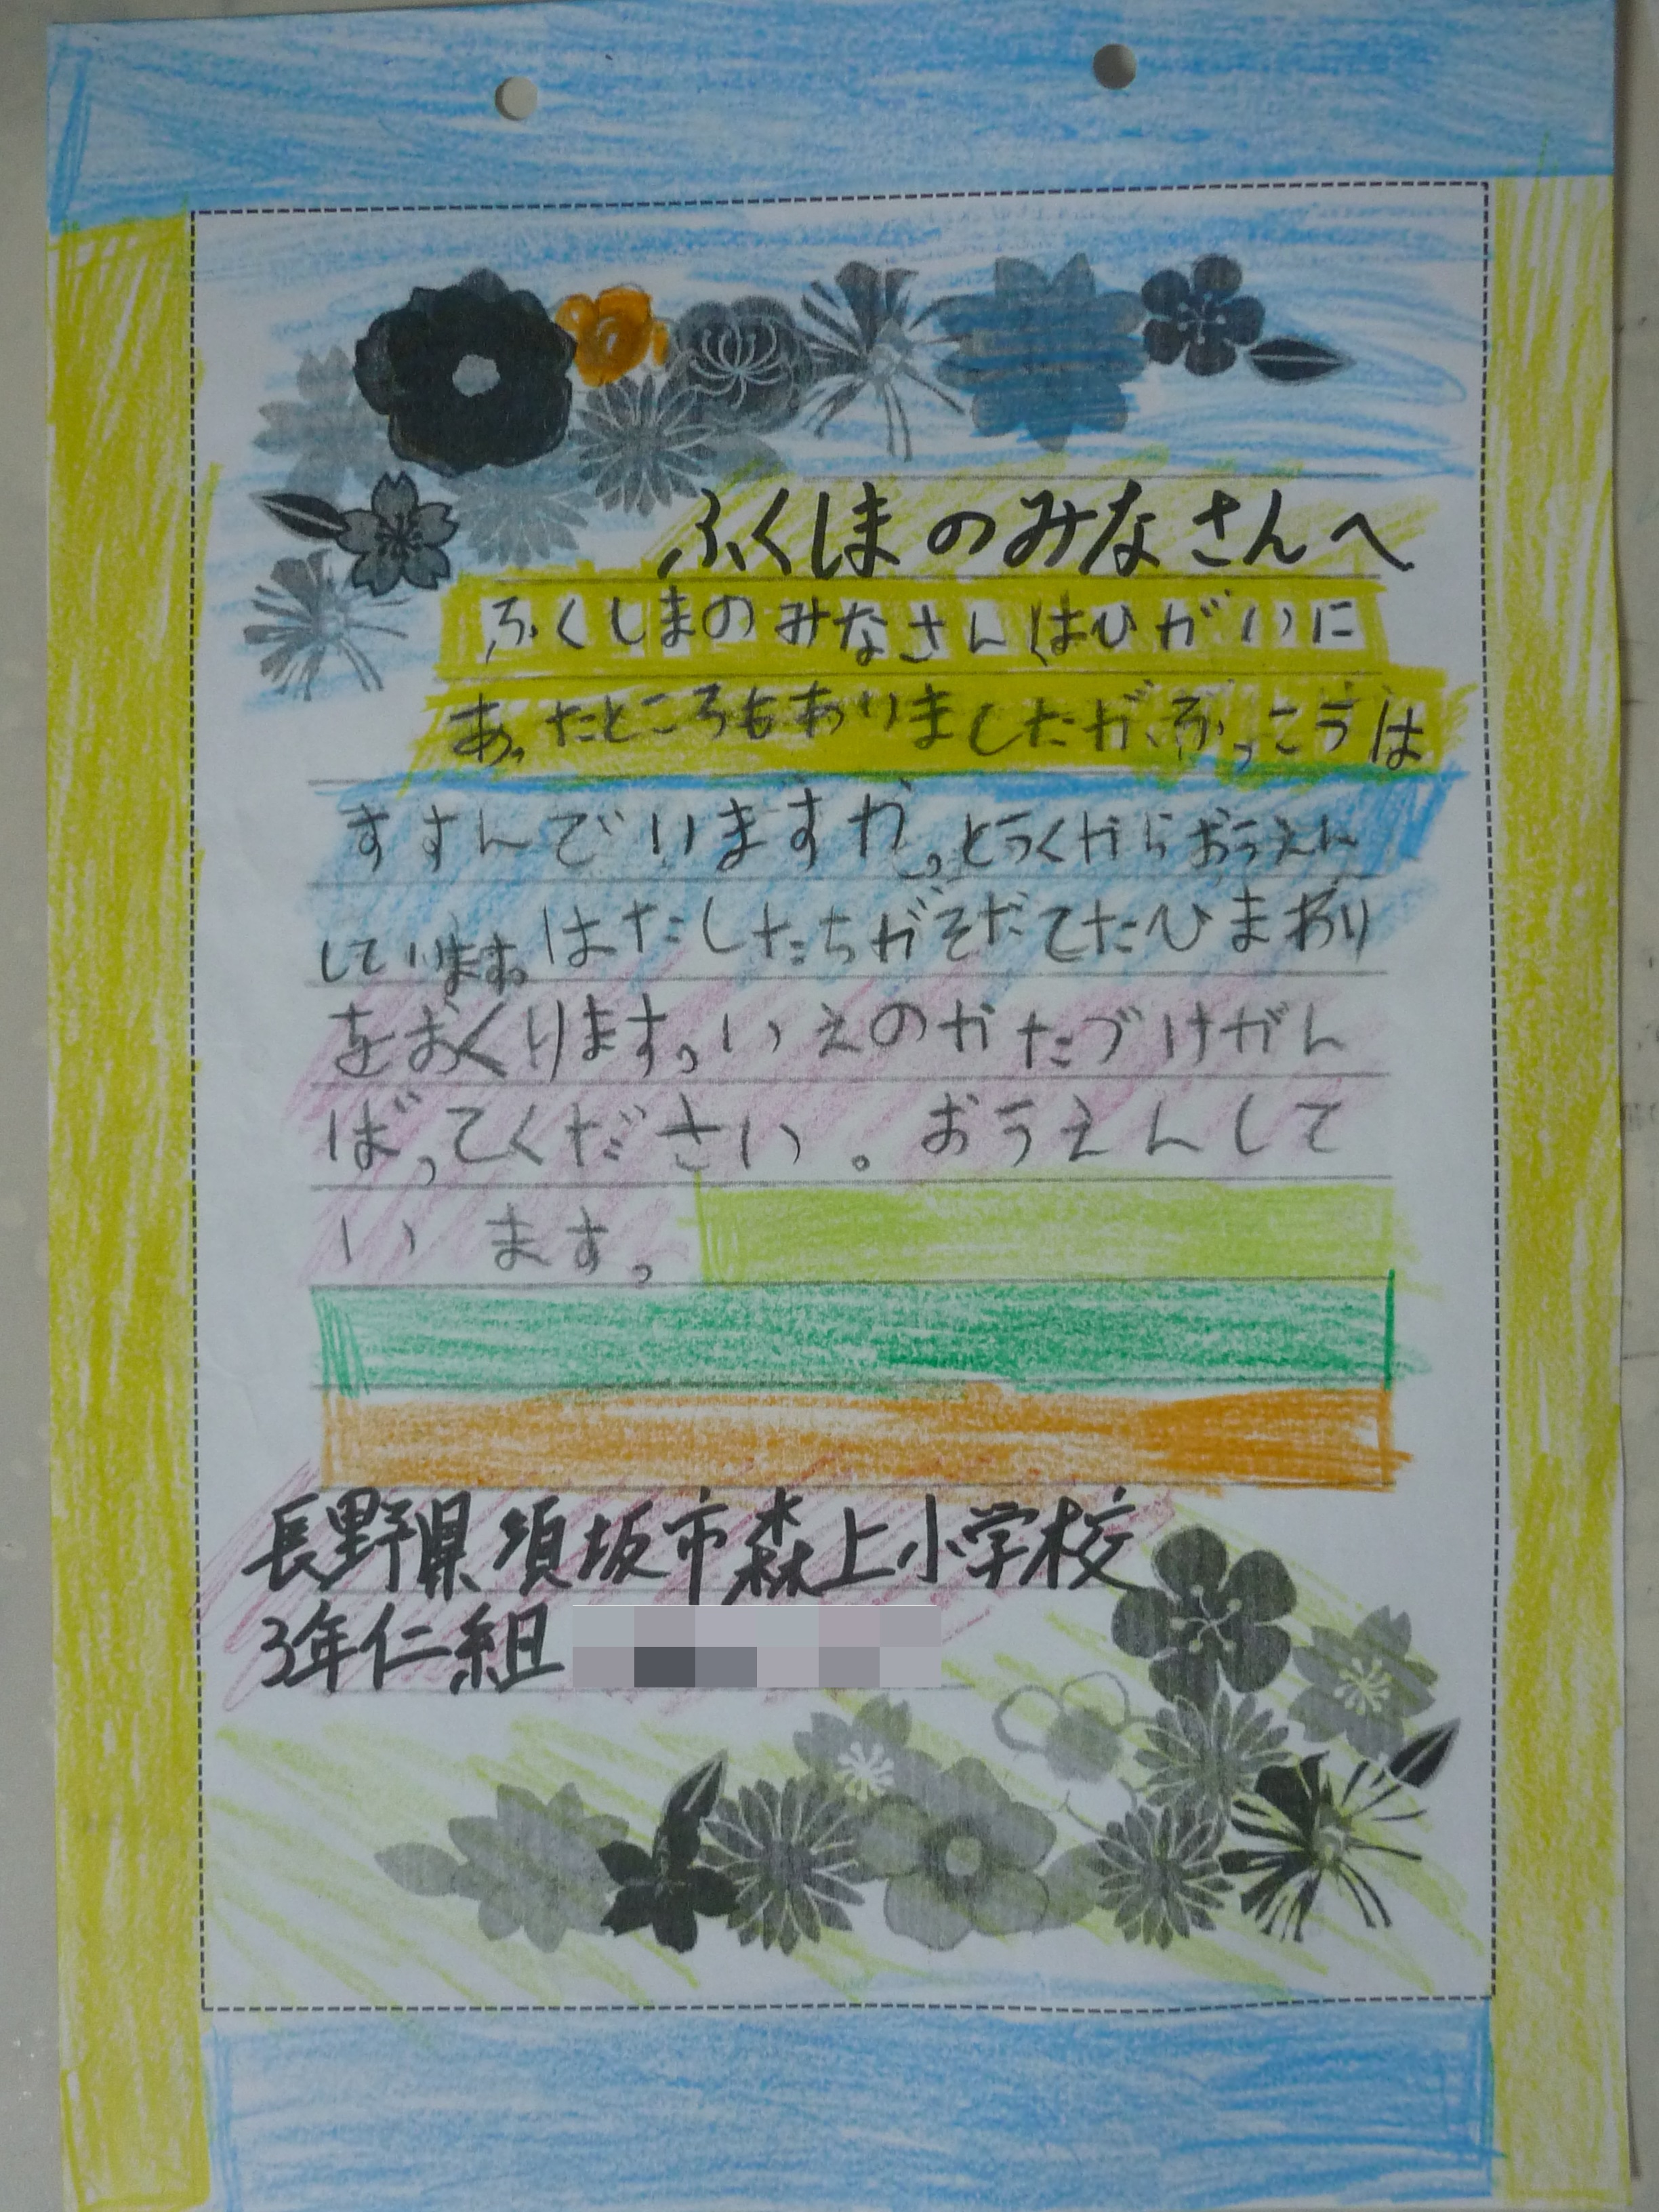 ふくしまのみなさんへ
ふくしまのみなさんはひがいに
あったところもありましたが、ふっこうは
すすんでいますか。とうくからおうえん
しています。はたしたちがそだてたひまわり
をおくります。いえのかたづけがん
ばってください。おうえんして
います。
長野県須坂市森上小学校
3年仁組